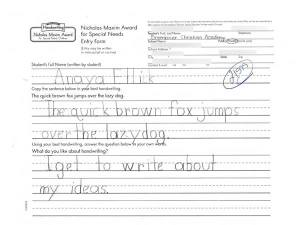 Handwriting
Nicholas Maxim Award
for Special Needs
Entry Form
Student's Full Name (written by student)
Anaya Ellik
Copy the sentence below in your best handwriting.
The quick brown fox jumps over the lazy dog.
The quick brown fox jumps
over the lazy dog.
Using your best handwriting, answer the question below in your own words.
What do you like about handwriting?
I get to write about
my ideas.